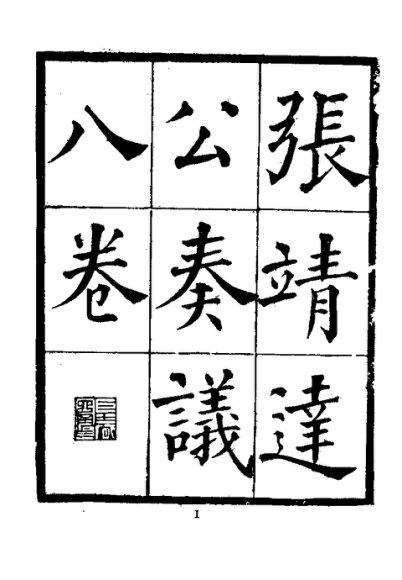 張靖達
公奏議
八卷
1